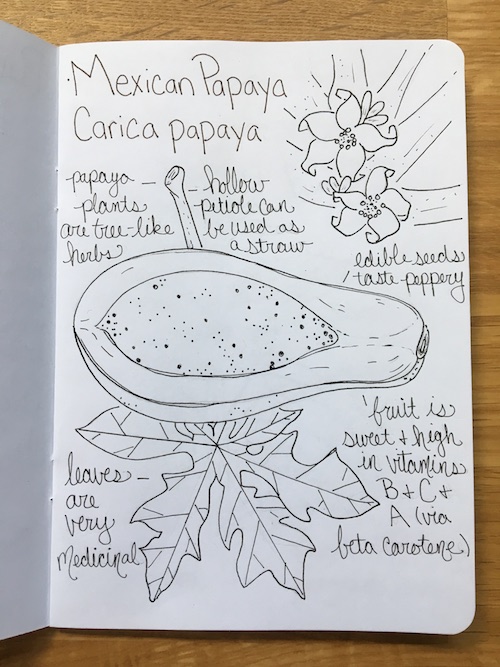 Mexican Papaya
Carica papaya
papaya
plants
are tree-like
herbs
hollow
petiole can
be used as
a straw
edible seeds
taste peppery
fruit is
sweet + high
in vitamins
B + C +
A (via
beta carotene)
leaves
are
very
medicinal